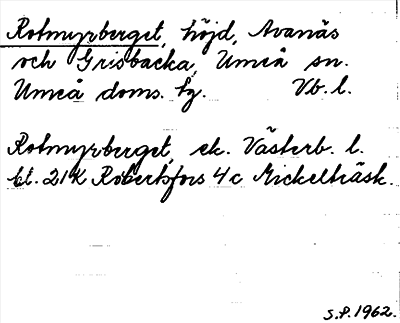 Rotmyrberget, höjd, Avanäs
och Grisbacka, Umeå sn.
Umeå doms. hg. Vb. l.
Rotmyrberget, ek. Västerb. l.
bl. 21K Robertsfors 4c Mickelträsk.
S.P. 1962.